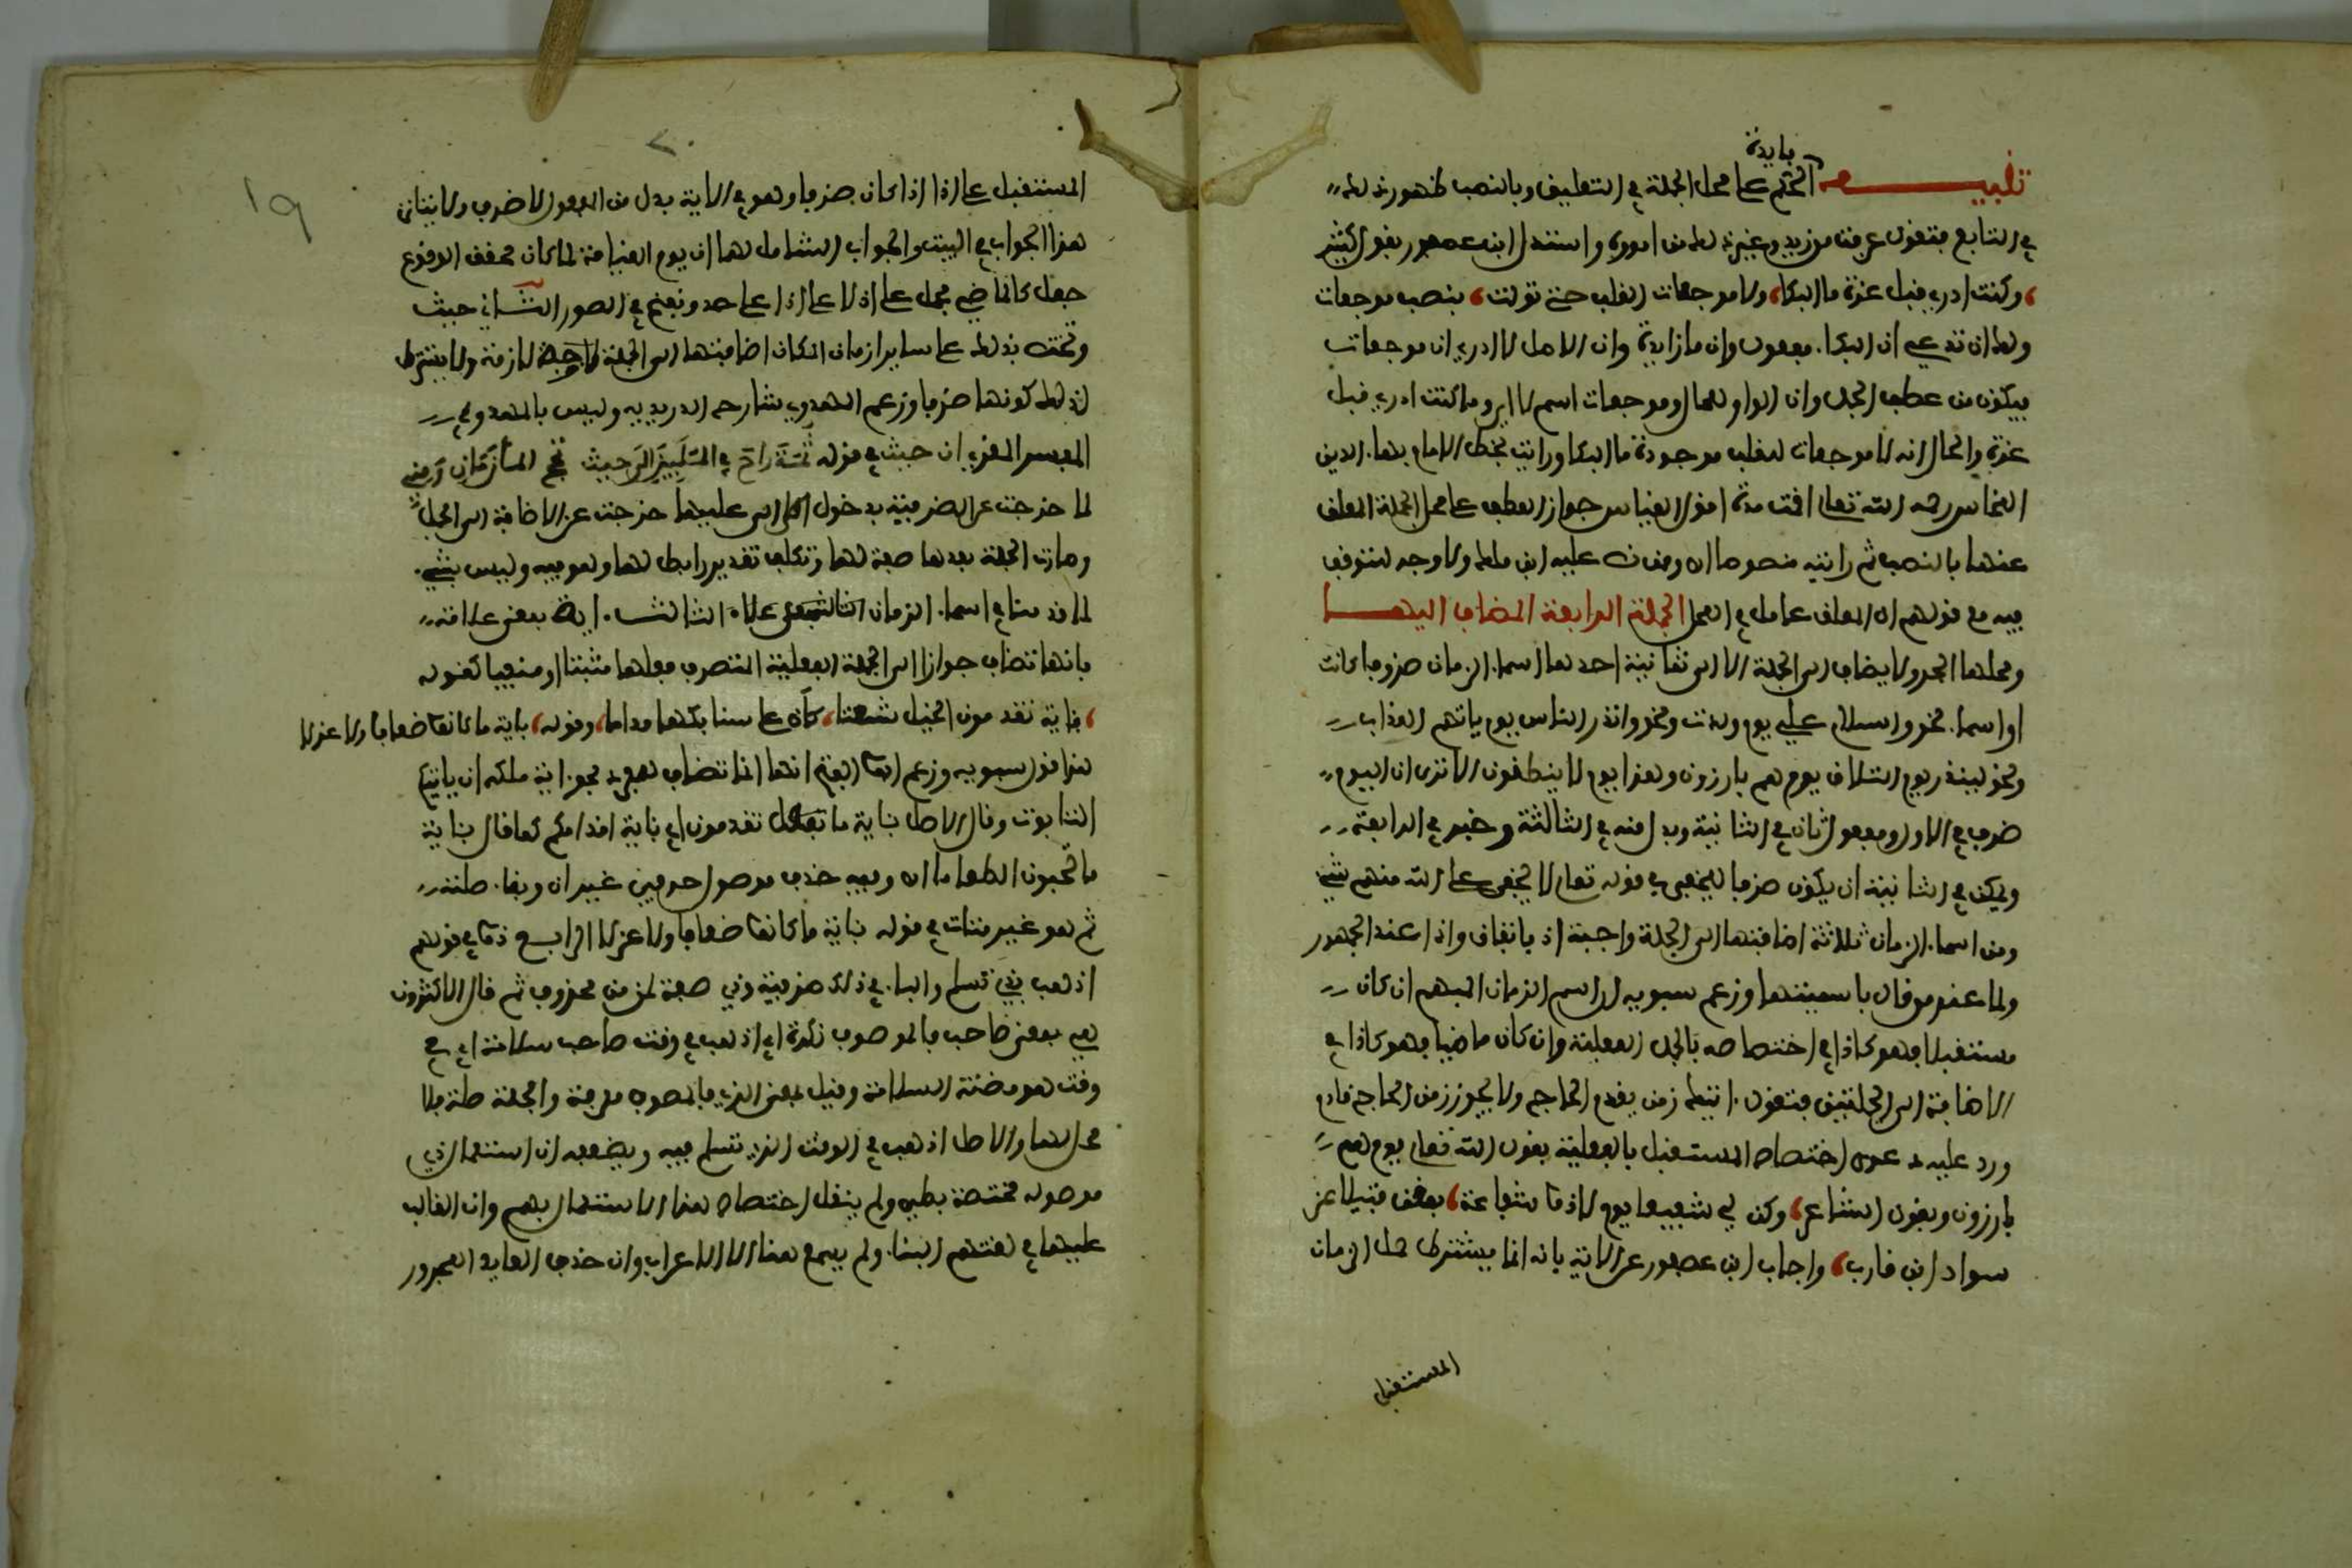 فايدة
تنبيه الحكم على محل الجملة في التعليق وبالنصب ظهور ذلك
في التابع فتقول عرفت من زيد وغير ذلك من اموره واستدل ابن عصفور بقول كثير
وكنت ادري قبل عزة ما البكا ولا موجعات القلب حتى تولت بنصب موجعات
ولك ان تدعي ان البكا مفعول وان ما زايدة وان الاصل لا ادري ان موجعات
فيكون من عطف الجمل وان الواو للحال وموجعات اسم لا اي وما كنت ادري قبل
عزة والحال انه لا موجعات للقلب موجودة ما البكا ورايت بخط الامام بهاء الدين
النحاس رحمه الله تعالى اقمت مدة اقول القياس جواز العطف على محل الجملة المعلق
عنها بالنصب ثم رايته منصوصا اه وممن نص عليه ابن ملك ولا وجه للتوقف
فيه مع قولهم ان المعلق عامل في المحل الجملة الرابعة المضاف اليها
ومحلها الجر ولا يضاف الى الجملة الا الى ثمانية احدها اسماء الزمان ظروفا كانت
او اسماء نحو والسلام علي يوم ولدت ونحو وانذر الناس يوم ياتيهم العذاب
ونحو لينذر يوم التلاق يوم هم بارزون وهذا يوم لا ينطقون الا ترى ان اليوم
ظرف في الاول ومفعول ثان في الثانية وبدل منه في الثالثة وخبر في الرابعة
ويمكن في الثانية ان يكون ظرفا ليخفى في قوله تعالى لا يخفى على الله منهم شيء
ومن اسماء الزمان ثلاثة اضافتها الى الجملة واجبة اذ باتفاق واذا عند الجمهور
ولما عند من قال باسميتها وزعم سيبويه ان اسم الزمان المبهم ان كان
مستقبلا فهو كاذا في اختصاصه بالجمل الفعلية وان كان ماضيا فهو كاذ في
الاضافة الى الجملتين فتقول اتيتك زمن يقدم الحاج ولا يجوز زمن الحاج قادم
ورد عليه دعوى اختصاص المستقبل بالفعلية بقول الله تعالى يوم هم
بارزون وبقول الشاعر وكن لي شفيعا يوم لا ذو شفاعة بمغن فتيلا عن
سواد ابن قارب واجاب ابن عصفور عن الاية بانه انما يشترط حمل الزمان
المستقبل
٢٠
١٩
المستقبل على اذا اذا كان ظرفا وهو في الاية بدل من المفعول لا ظرف ولا يتاتى
هذا الجواب في البيت والجواب الشامل لهما ان يوم القيامة لما كان محقق الوقوع
جعل كالماضي فحمل على اذ لا على اذا على حد ونفخ في الصور الثاني حيث
وتختص بذلك على ساير ازمان المكان اضافتها الى الجملة لازمة ولا يشترط
لذلك كونها ظرفا وزعم المهدوي شارح الدريدية وليس بالمهدوي
المفسر المقري ان حيث في قوله ثمت راح في الملبين الى حيث تحجى المازمان ومنى
لما خرجت عن الظرفية بدخول الى عليها خرجت عن الاضافة الى الجمل
وصارت الجملة بعدها صفة لها وتكلف تقدير رابط لها وهو فيه وليس بشيء
لما قدمنا في اسماء الزمان الثالث اية بمعنى علامة
فانها تضاف جوازا الى الجملة الفعلية المتصرف فعلها مثبتا او منفيا كقوله
باية تقدمون الخيل شعثا كان على سنابكها مداما وقوله باية ما كانوا ضعافا ولا عزلا
هذا قول سيبويه وزعم ابو الفتح انها انما تضاف للمفرد نحو اية ملكه ان ياتيكم
التابوت وقال الاصل باية ما تقدمون اي باية اقدامكم كما قال باية
ما تحبون الطعاما اه وفيه حذف موصول حرفي غير ان وبقاء صلته
ثم هو غير متات في قوله باية ما كانوا ضعافا ولا عزلا الرابع ذو في قولهم
اذهب بذي تسلم والباء في ذلك ظرفية وذي صفة لزمن محذوف ثم قال الاكثرون
هي بمعنى صاحب فالموصوف نكرة اي اذهب في وقت صاحب سلامة اي في
وقت هو مضنة السلامة وقيل بمعنى الذي فالموصوف معرفة والجملة صلة فلا
محل لها والاصل اذهب في الوقت الذي تسلم فيه ويضعفه ان استعمال ذي
موصولة مختصة بطيء ولم ينقل اختصاص هذا الاستعمال بهم وان الغالب
عليها في لغتهم البناء ولم يسمع هنا الا الاعراب وان حذف العايد المجرور